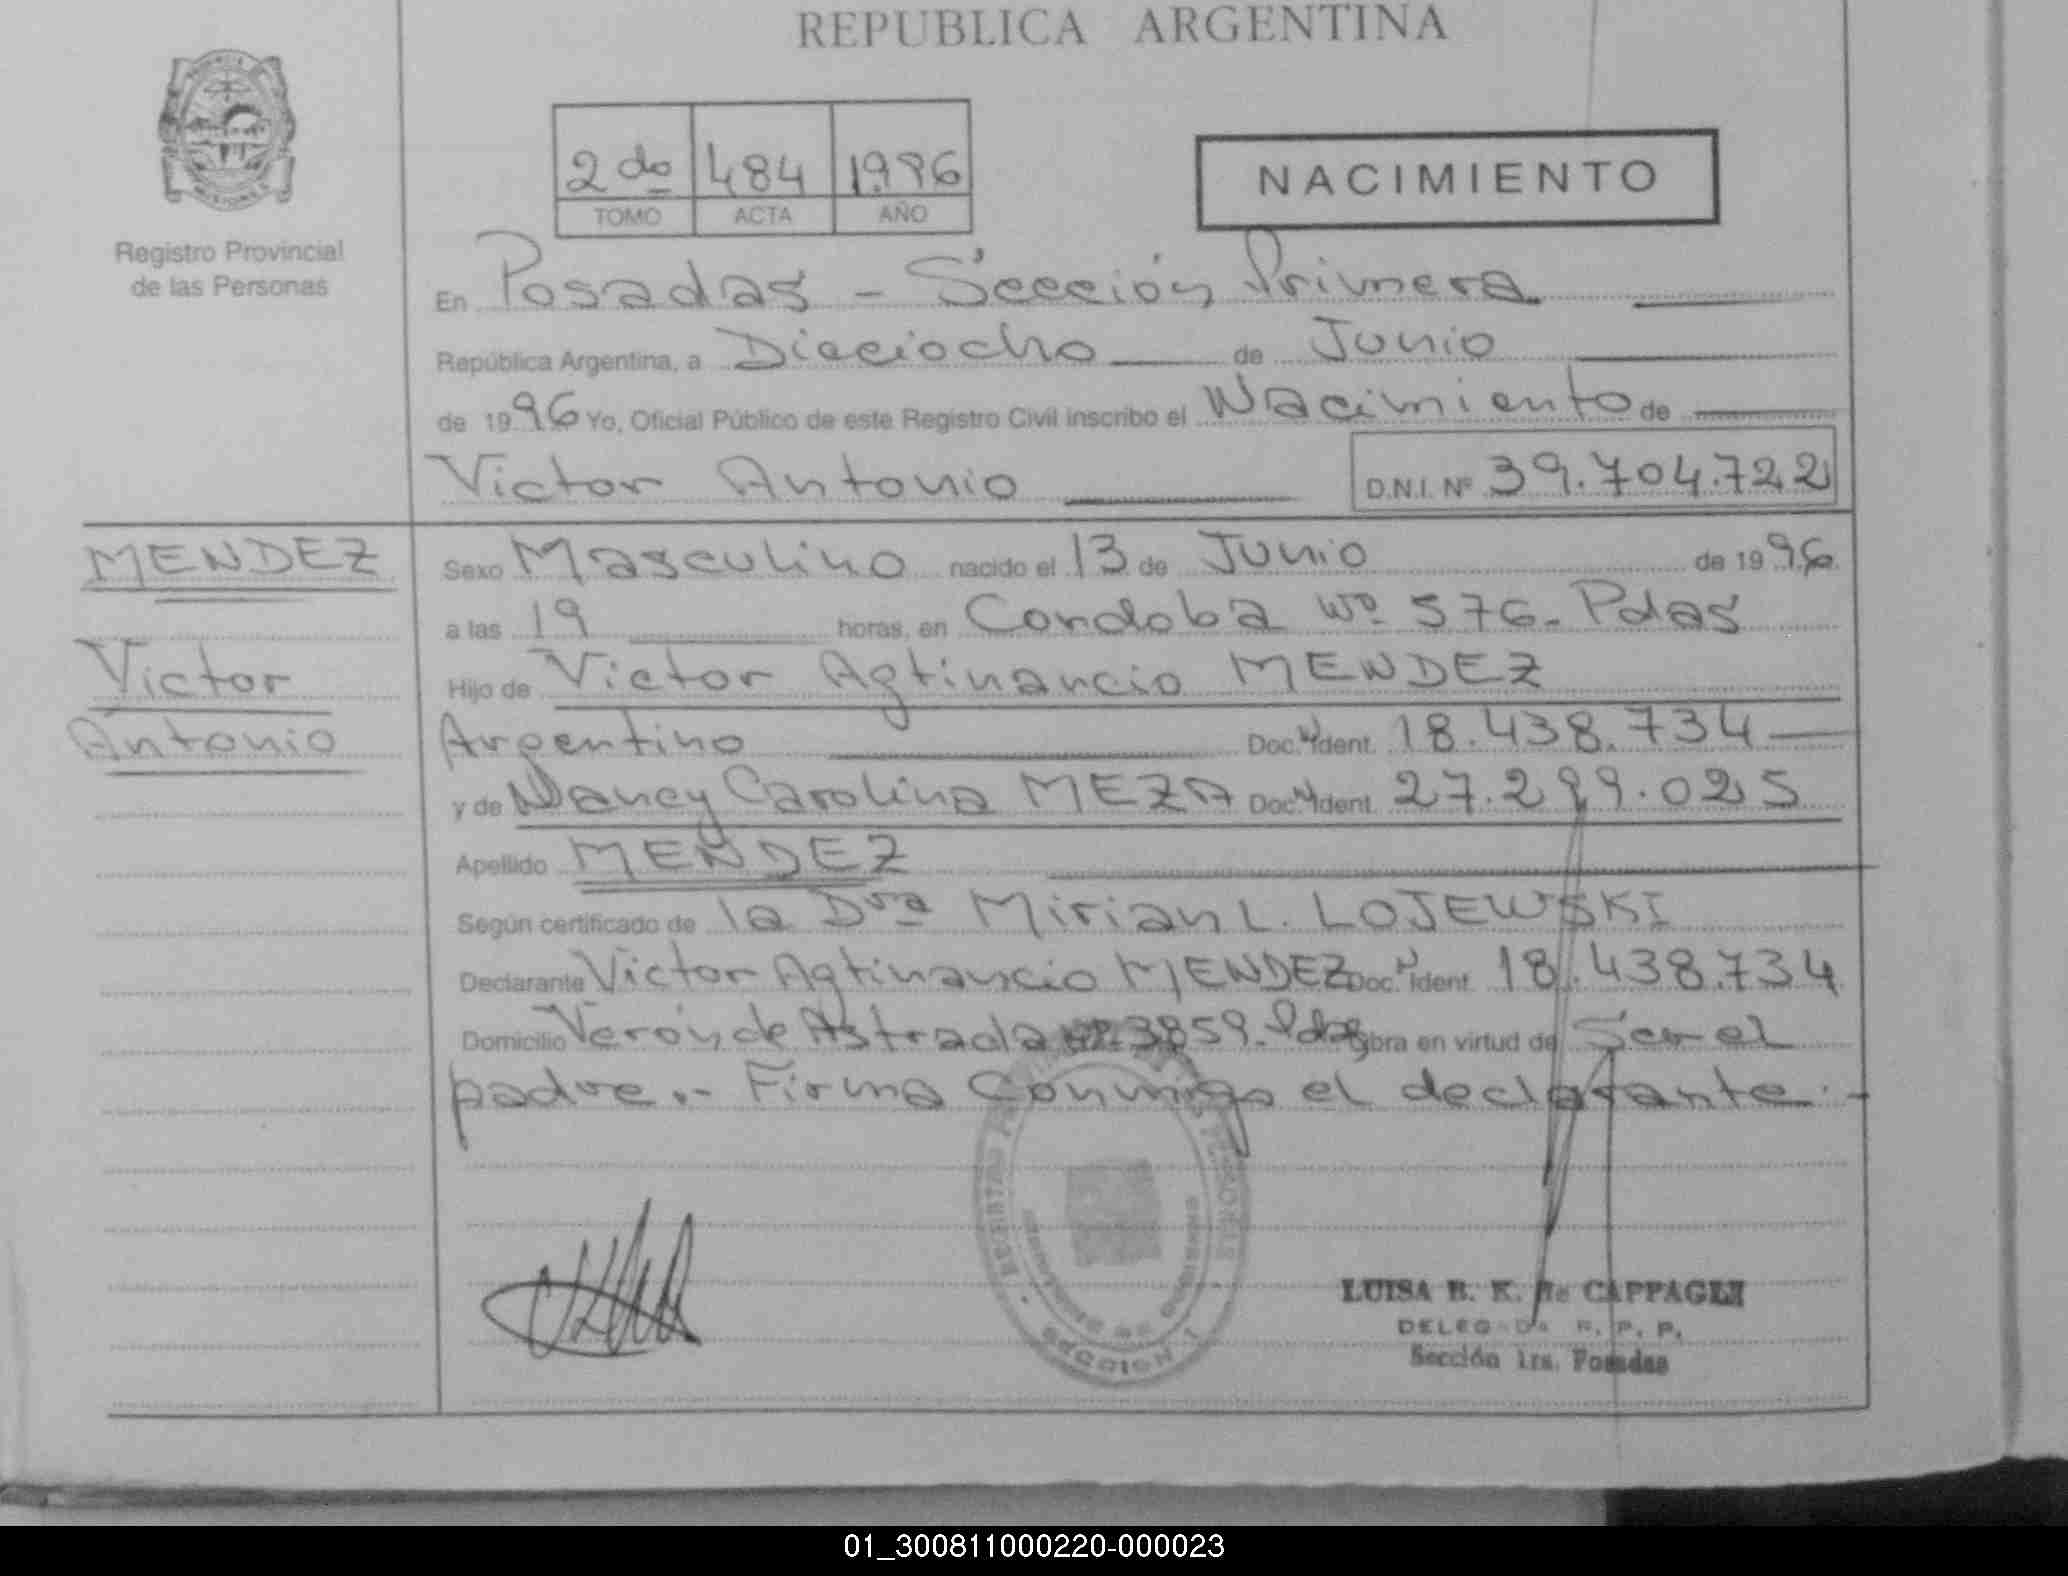 REPUBLICA ARGENTINA
Registro Provincial
de las Personas
2do 484 1996
TOMO ACTA AÑO
NACIMIENTO
En Posadas - Sección Primera
República Argentina, a Dieciocho de Junio
de 1996 Yo, Oficial Público de este Registro Civil inscribo el Nacimiento de
Victor Antonio D.N.I. Nº 39.704.722
MENDEZ
Victor
Antonio
Sexo Masculino nacido el 13 de Junio de 1996.
a las 19 horas, en Cordoba Nº 576. Pdas
Hijo de Victor Agtinancio MENDEZ
Argentino Doc. Ident. 18.438.734
y de Nancy Carolina MEZA Doc. Ident. 27.299.025
Apellido MENDEZ
Según certificado de la Dra Mirian L. LOJEWSKI
Declarante Victor Agtinancio MENDEZ Doc. Ident. 18.438.734
Domicilio Verón de Astrada Nº 3859. Pdas Obra en virtud de Ser el
padre.- Firma Conmigo el declarante.-
SECCION 1
LUISA B. K. de CAPPAGLI
DELEGADA R. P. P.
Sección 1ra. Posadas
01_300811000220-000023